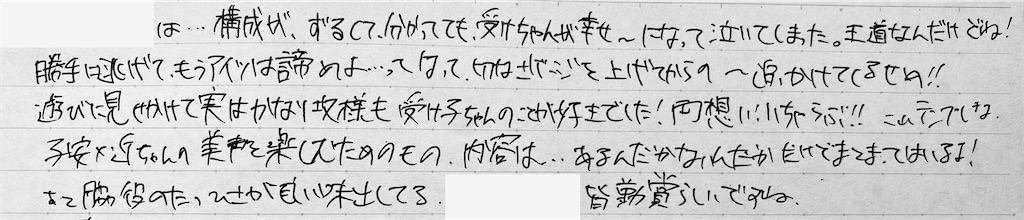 は…構成が、ずるくて、分かってても、受けちゃんが幸せ〜になって泣いてしまった。王道なんだけどね!
勝手に逃げて、もうアイツは諦めよ…ってなって、切ねさゲージを上げてからの〜追いかけてくるせめ!!
遊びに見せかけて実はかなり攻様も受け子ちゃんのことが好きでした!両想いいちゃらぶ!!これテンプレね。
子安×近ちゃんの美声を楽しむためのもの。内容は…あるんだかないんだかだけでまとまってはいる!
あと脇役のたっつさが良い味出してる。 皆勤賞らしいですね。